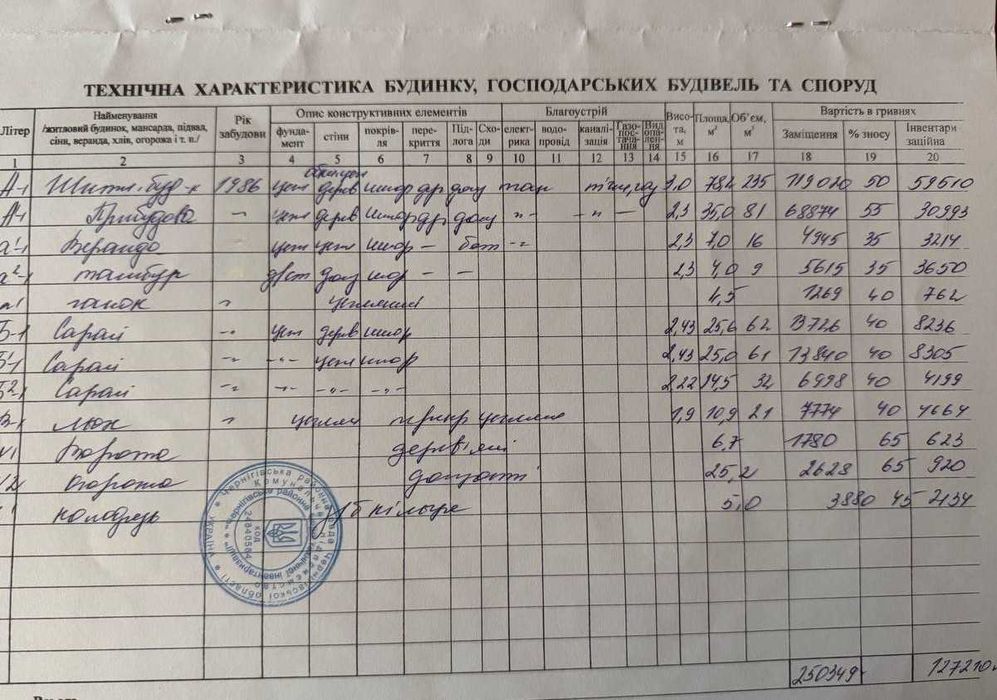 ТЕХНІЧНА ХАРАКТЕРИСТИКА БУДИНКУ, ГОСПОДАРСЬКИХ БУДІВЕЛЬ ТА СПОРУД
Літер Найменування /житловий будинок, мансарда, підвал, сіни, веранда, хлів, огорожа і т. п./ Рік забудови Опис конструктивних елементів Благоустрій Висота, м Площа, м² Об'єм, м³ Вартість в гривнях
фундамент стіни покрівля перекриття Підлога Сходи електрика водопровід каналізація Газопостачання Вид опалення Заміщення % зносу Інвентаризаційна
1 2 3 4 5 6 7 8 9 10 11 12 13 14 15 16 17 18 19 20
А-1 Житл. буд-к 1986 цег дерев шифер дер дощ 3,0 78,2 235 119020 50 59510
Прибудова - цег дерев шифер дер дощ -"- -"- - 2,3 35,0 81 68874 55 30993
Веранда цег цег шифер - бет -"- 2,3 7,0 16 4945 35 3214
тамбур дощ шифер - - 2,3 4,0 9 5615 35 3650
ганок -"- цегляний 4,5 1269 40 762
Б-1 Сарай -"- цег дерев шифер 2,43 25,6 62 13726 40 8236
Сарай -"- -"- цегл шифер 2,43 25,0 61 13840 40 8305
Сарай -"- -"- -"- -"- 2,22 14,5 32 6998 40 4199
В-1 льох -"- цеглян цегляне 1,9 10,9 21 7774 40 4664
Ворота дерев'яні 6,7 1780 65 623
Огорожа дощаті 25,2 2628 65 920
колодязь з/б кільце 5,0 3880 45 2134
250349 127210